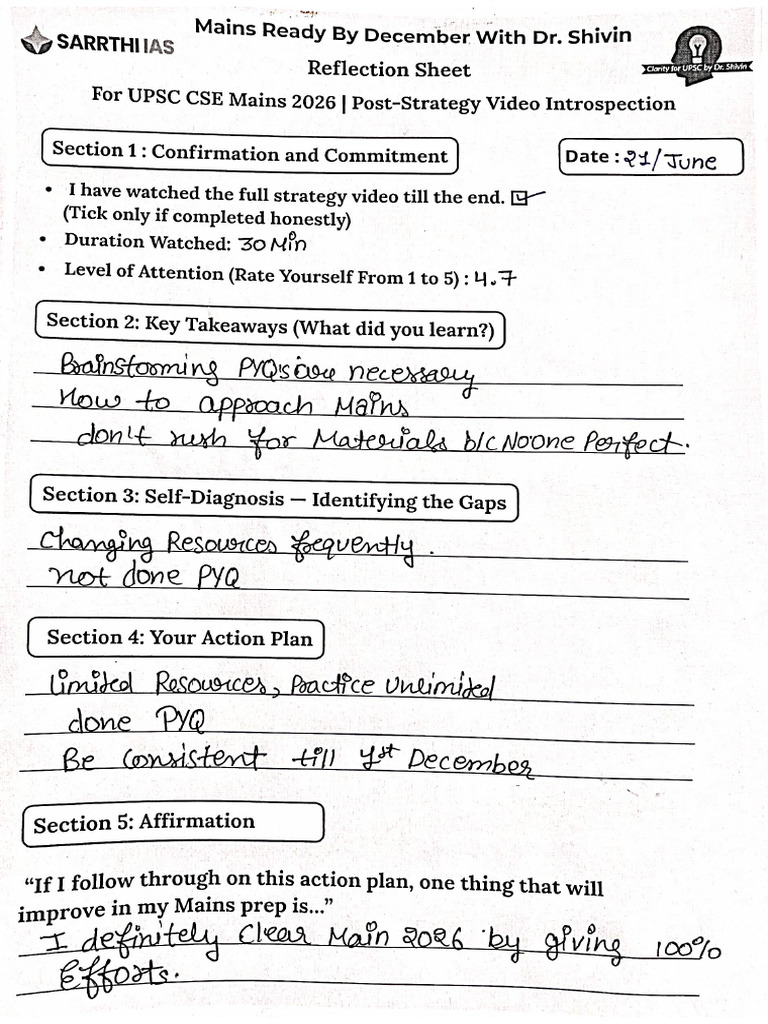 SARRTHI IAS
Mains Ready By December With Dr. Shivin
Clarity for UPSC by Dr. Shivin
Reflection Sheet
For UPSC CSE Mains 2026 | Post-Strategy Video Introspection
Section 1 : Confirmation and Commitment
Date : 21/June
• I have watched the full strategy video till the end. ☑
(Tick only if completed honestly)
• Duration Watched: 30 Min
• Level of Attention (Rate Yourself From 1 to 5) : 4.7
Section 2: Key Takeaways (What did you learn?)
Brainstorming PYQ's are necessary
How to approach Mains
don't rush for Materials b/c No one Perfect.
Section 3: Self-Diagnosis — Identifying the Gaps
Changing Resources frequently.
not done PYQ
Section 4: Your Action Plan
Limited Resources, Practice Unlimited
done PYQ
Be consistent till 1st December
Section 5: Affirmation
“If I follow through on this action plan, one thing that will
improve in my Mains prep is...”
I definitely Clear Main 2026 by giving 100%
Efforts.